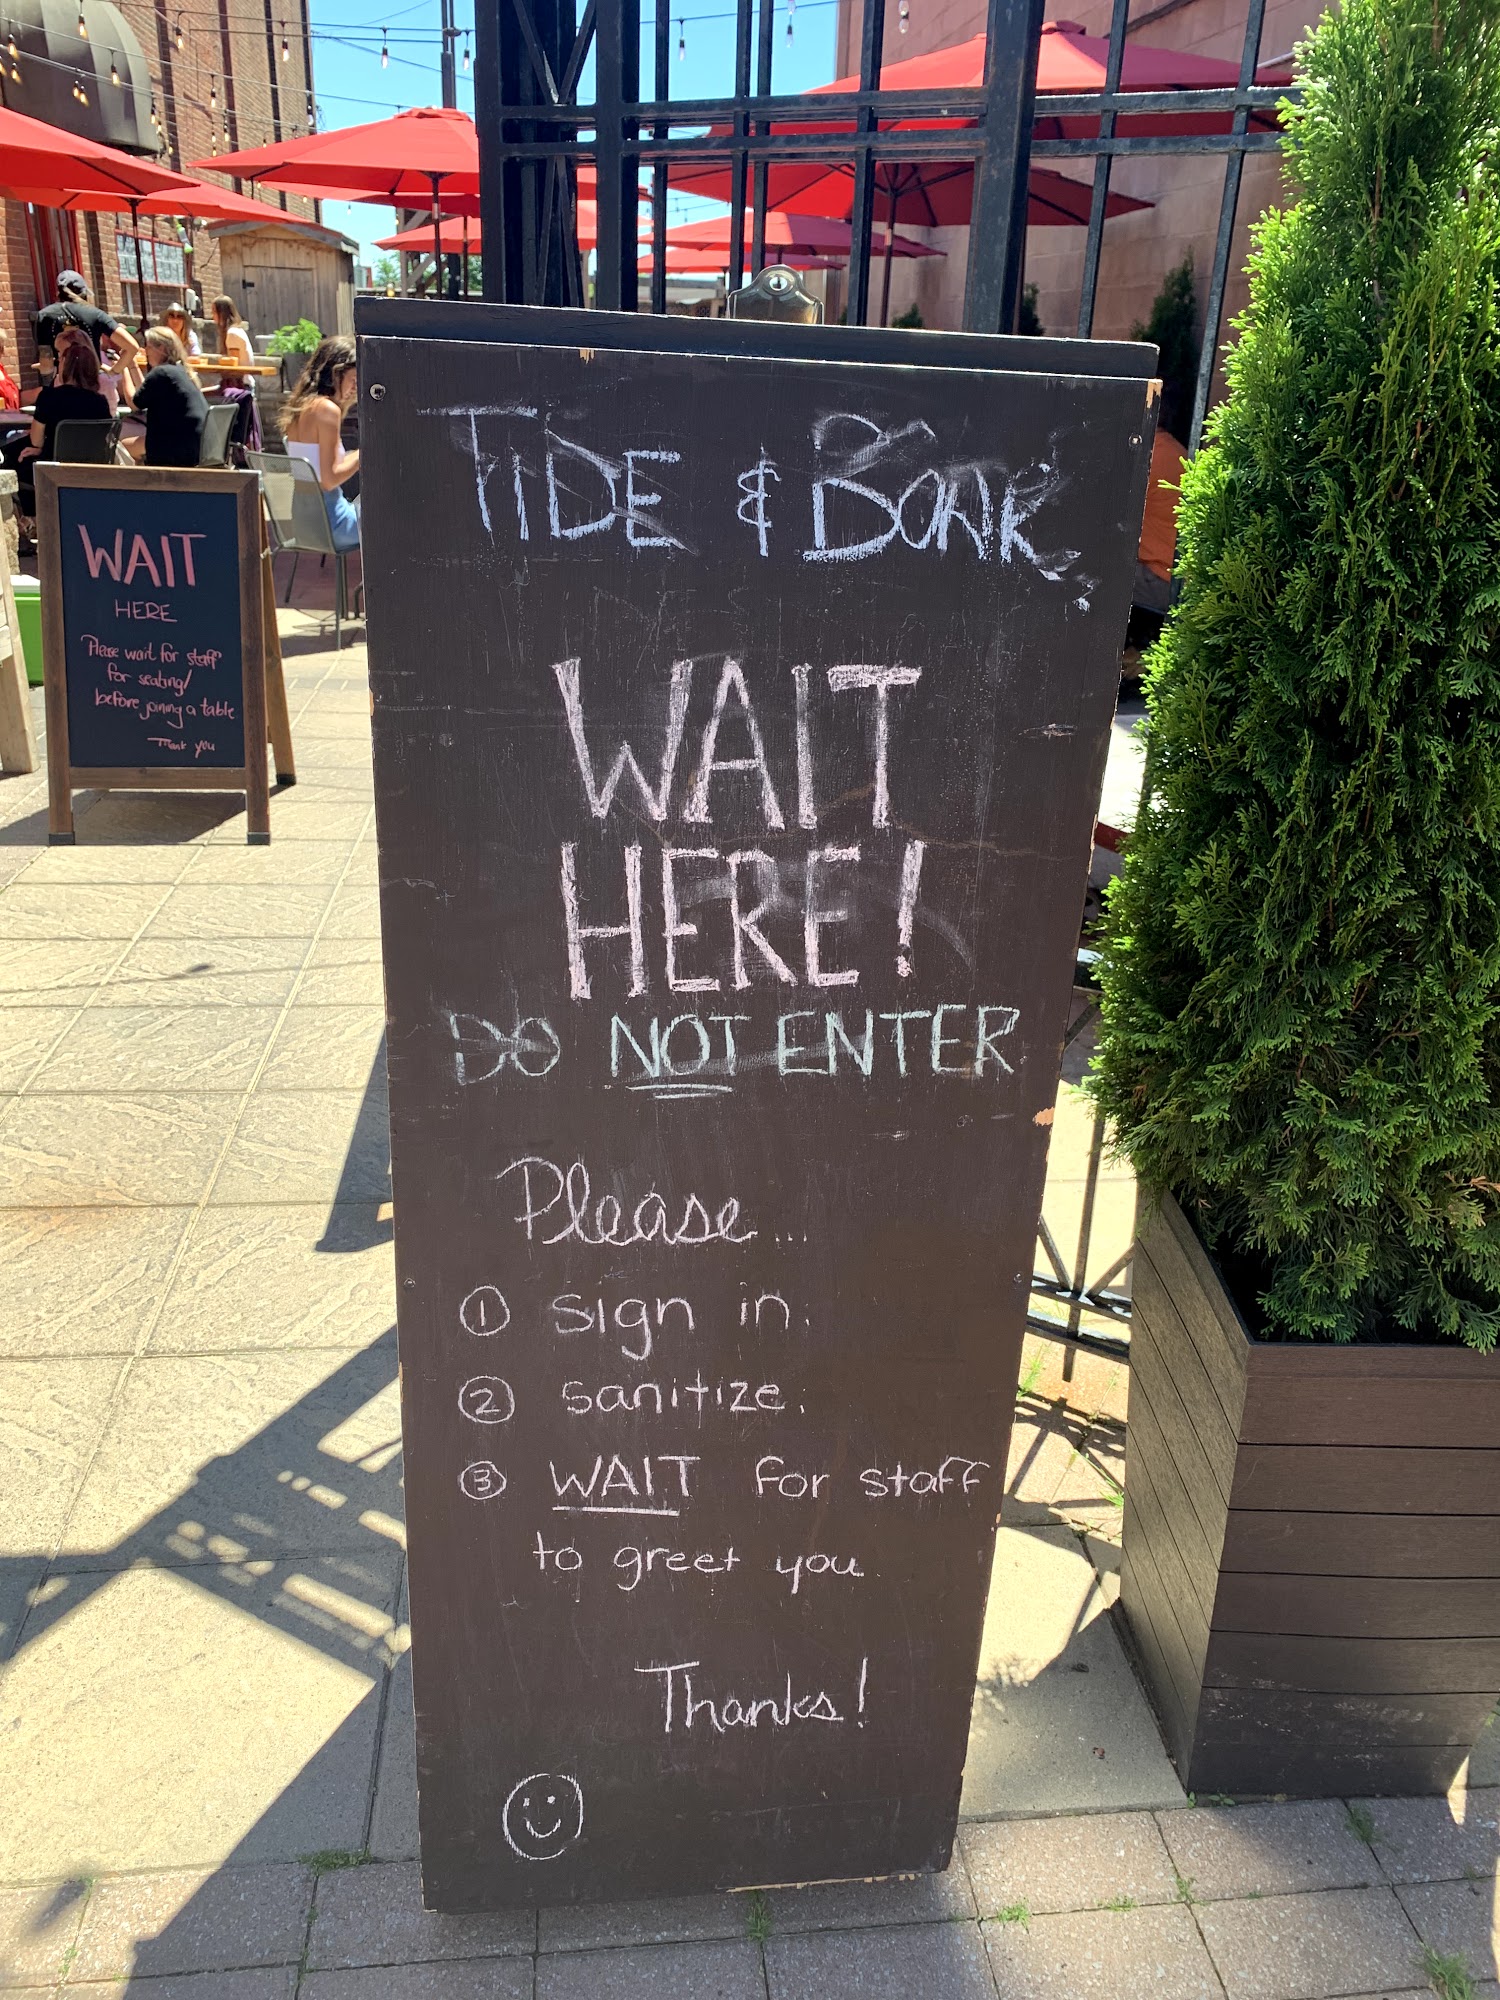 TIDE & BOAR
WAIT
HERE!
DO NOT ENTER
Please...
① sign in.
② sanitize.
③ WAIT for staff
to greet you
Thanks!
WAIT
HERE
Please wait for staff
for seating/
before joining a table
Thank you